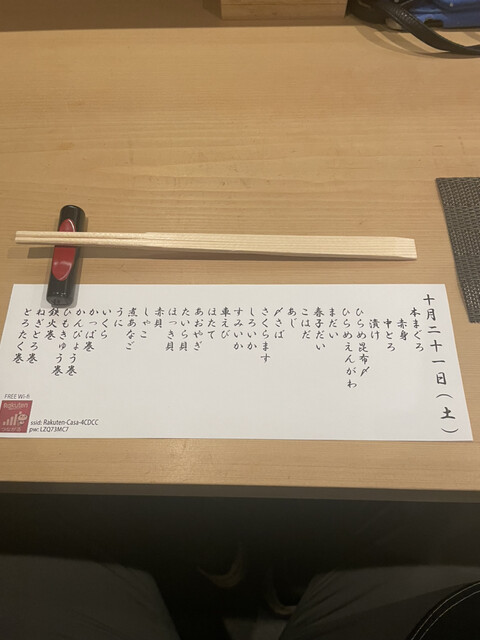 十月二十一日(土)
本まぐろ
赤身
中とろ
漬け
ひらめ昆布〆
ひらめえんがわ
まだい
春子だい
こはだ
あじ
〆さば
さくらます
しろいか
すみいか
車えび
ほたて
あおやぎ
たいら貝
ほっき貝
赤貝
しゃこ
煮あなご
うに
いくら
かっぱ巻
かんぴょう巻
ひもきゅう巻
鉄火巻
ねぎとろ巻
とろたく巻
FREE Wi-fi
Rakuten
ssid: Rakuten-Casa-4CDCC
pw: LZQ73MC7